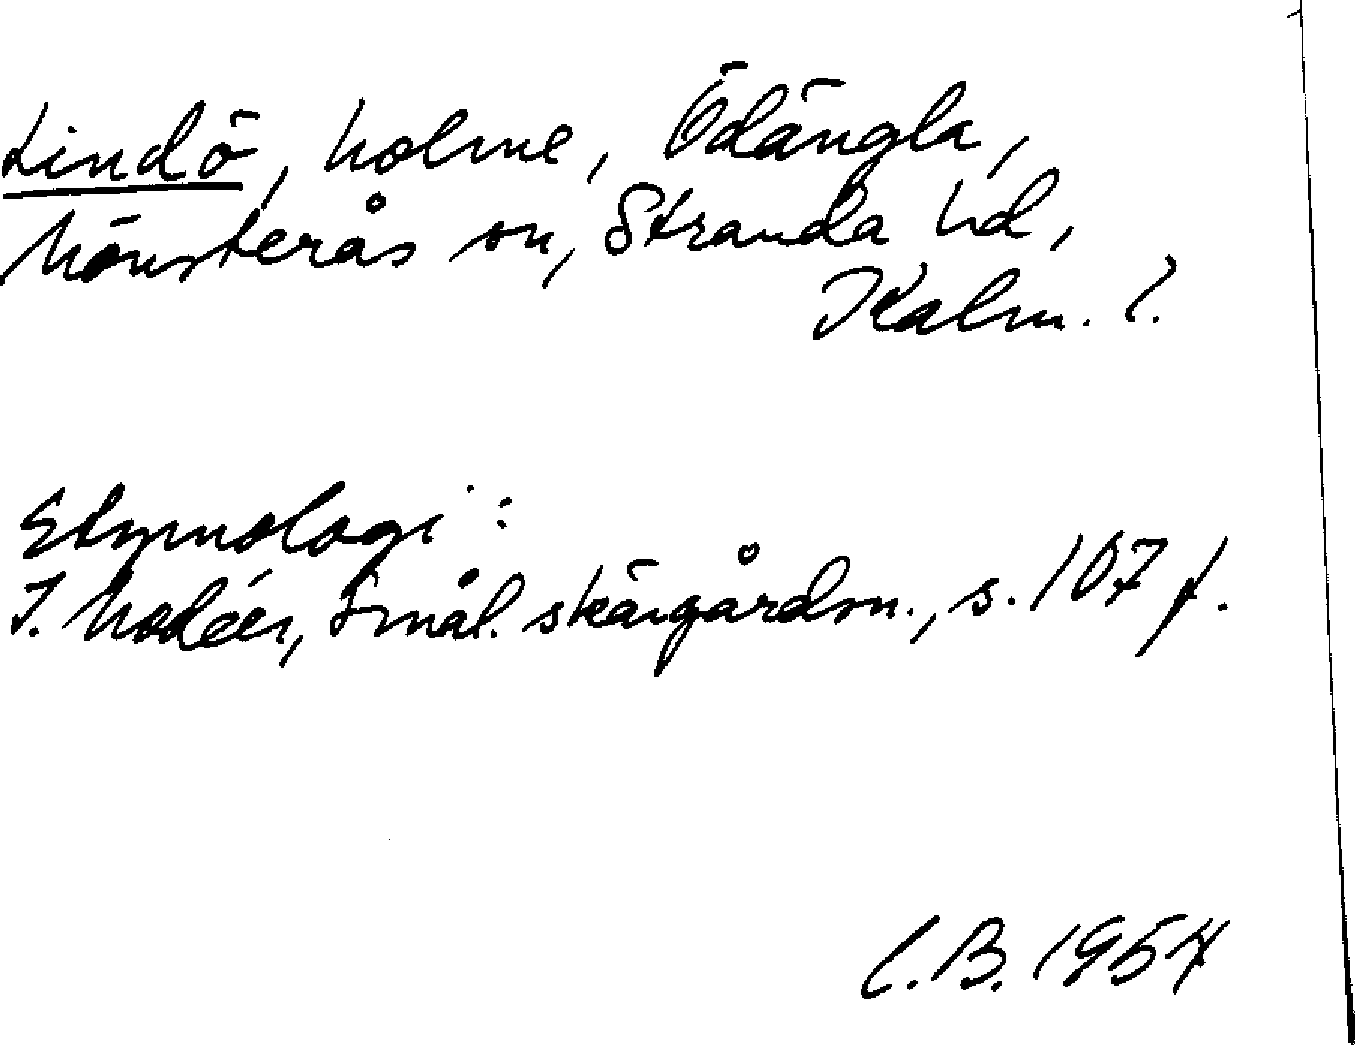 Lindö, holme, Ödängla,
Mönsterås sn, Stranda hd,
Kalm. l.
Etymologi:
I. Modéer, Smål. skärgårdsn., s. 107 f.
C.B. 1957